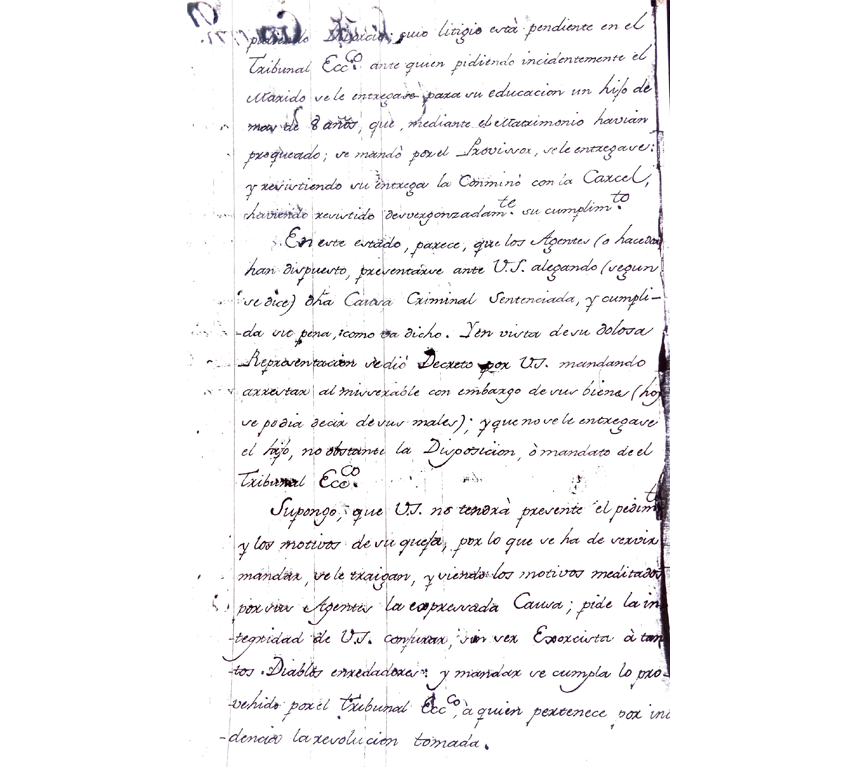 Divorcio; cuio litigio està pendiente en el
Tribunal Ecc.co ante quien pidiendo incidentemente el
Marido se le entregase para su educacion un hijo de
mas de 8 años, que, mediante el Matrimonio havian
proqueado; se mandò por el Provissor, se le entregase:
y resistiendo su entrega la Conminò con la Carcel,
haviendo resistido desvergonzadam.te su cumplim.to
En este estado, parece, que los Agentes (o hacedores
han dispuesto, presentarse ante V.S. alegando (segun
se dice) dha Causa Criminal Sentenciada, y cumpli-
-da su pena, como va dicho. Y en vista de su dolosa
Representacion se diò Decreto por V.S. mandando
arrestar al misserable con embargo de sus bienes (hoy
se podia decir de sus males); y que no se le entregase
el hijo, no obstante la Disposicion, ò mandato de el
Tribunal Ecc.co
Supongo, que V.S. no tendrà presente el pedim.to
y los motivos de su queja, por lo que se ha de servir
mandar, se le traigan, y viendo los motivos meditados
por sus Agentes la expressada Causa; pide la in-
tegridad de V.S. conjurar, sin ser Exorcista à tan-
tos Diablos enredadores: y mandar se cumpla lo pro-
-vehido por el Tribunal Ecc.co, à quien pertenece por inci
-dencia la resolucion tomada.